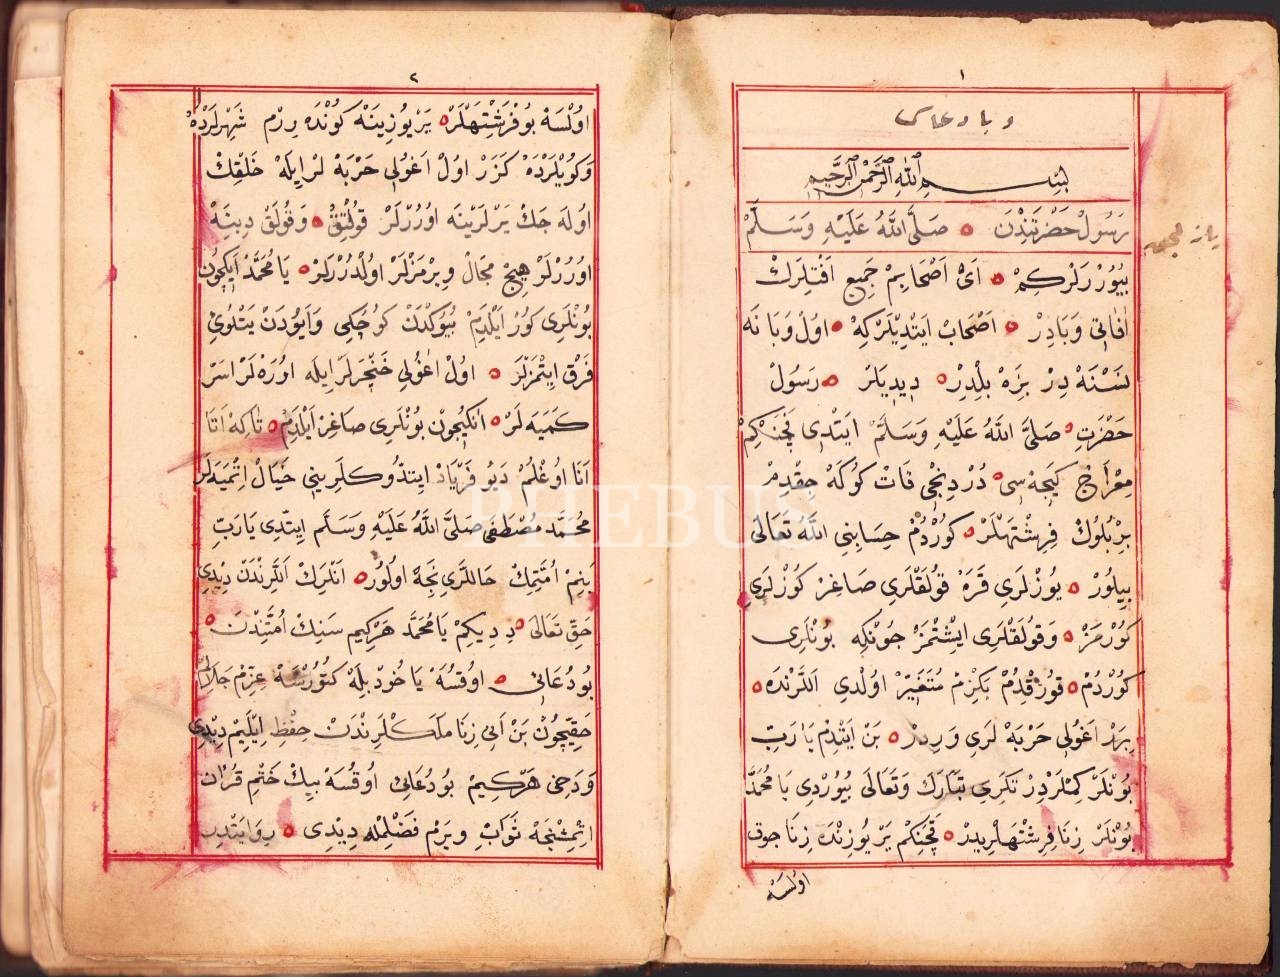 ١
وبا دعاسى
بِسْمِ اللّٰهِ الرَّحْمٰنِ الرَّحِيمِ
رَسُولْ حَضْرَتِنْدَنْ ۝ صَلَّى اللّٰهُ عَلَيْهِ وَسَلَّمْ
بُيُورُرَلَرْكِمْ ۝ اَىْ اَصْحَابِمْ جَمِيعِ اٰفَتْلَرِكْ
اٰفَاتِى وَبَادِرْ ۝ اَصْحَابْ اَيْتِدِيلَرْكِهْ ۝ اُولْ وَبَا نَه
نَسْنَهْ دِرْ بِزَهْ بِلْدِرْ ۝ دِيدِيلَرْ ۝ رَسُولْ
حَضْرَتِ ۝ صَلَّى اللّٰهُ عَلَيْهِ وَسَلَّمْ اَيْتْدِى قَچَنْكِمْ
مِعْرَاجْ كَيجَهْ سِى ۝ دُرْدِنْجِى قَاتْ كُوكَهْ چِقْدِمْ
بِرْ بُلُوكْ فِرِشْتَهْلَرْ ۝ كُورْدُمْ حِسَابِنِى اللّٰهُ تَعَالَى
بِيلُورْ ۝ يُوزْلَرِى قَرَهْ قُولَقْلَرِى صَاغِرْ كُوزْلَرِى
كُورْمَزْ ۝ وَقُولَقْلَرِى اِيشِتْمَزْ چُونْكِهِ بُونْلَرِى
كُورْدُمْ ۝ قُورْقْدُمْ بَكِزِمْ مُتَغَيِّرْ اُولْدِى اَللَّرِنْدَه ۝
بِرَرْ اَغُولِى حَرْبَهْ لَرِى وَرِدِرْ ۝ بَنْ اَيْتْدِمْ يَارَبِّ
بُونْلَرْ كِمْلَرْدِرْ تَكْرِى تَبَارَكَ وَتَعَالَى بُيُورْدِى يَا مُحَمَّدْ
بُونْلَرْ زِنَا فِرِشْتَهْلَرِيدِرْ ۝ قَچَنْكِمْ يَرْ يُوزِنْدَه زِنَا چوق
اولسه
٢
اُولْسَهْ بُو فِرِشْتَهْلَرْ ۝ يَرْ يُوزِينَهْ كُونْدَه رِرِمْ شَهِرْلَرْدَهْ
وَكُويْلَرْدَهْ كَزَرْ اُولْ اَغُولِى حَرْبَهْ لَرْ اِيلَهْ خَلْقِكْ
اُولَه جَكْ يَرْلَرِينَه اُورُرْلَرْ قُولْتِقْ ۝ وَقُولَقْ دِيبِنَهْ
اُورُرْلَرْ هِيچْ مَجَالْ وِيرْمَزْلَرْ اُولْدُرُرْلَرْ ۝ يَا مُحَمَّدْ اَنِكِچُونْ
بُونْلَرِى كُورْ اَيْلَدِمْ بُيُوكْدَنْ كُوچُكِى وَاَيُودَنْ يَتْلُويِى
فَرْق اِيتْمَزْلَرْ ۝ اُولْ اٰغُولِى خَنْچَرْلَرْ اِيلَه اُورَهْ لَرْ اَسِرْ
كَمَيَه لَرْ ۝ اَنِكِيچُونْ بُونْلَرِى صَاغِرْ اَيْلَدِمْ ۝ تَاكِهْ اَتَا
اَنَا اُوغْلُمْ دَيُو فَرْيَادْ اِيتدُوكلَرِينِى خَيَالْ اِتْمَيَهلَر
مُحَمَّدْ مُصْطَفَى صَلَّى اللّٰهُ عَلَيْهِ وَسَلَّم اِيتْدِى يَارَبِّ
بَنِمْ اُمَّتِمِكْ حَاللَّرِى نِجَهْ اُولُورْ ۝ اَنْلَرِكْ اَللَّرِنْدَنْ دِيْدِى
حَقّ تَعَالَى ۝ دِدِيكِمْ يَا مُحَمَّدْ هَرْكِيمْ سَنِكْ اُمَّتِنْدَنْ ۝
بُودُعَانِى ۝ اُوقُسَهْ يَا خُودْ بِلَهْ كُتُورْسَهْ عِزِّمْ جَلَالِمْ
حَقِيچُونْ بَنْ اَنِى زِنَا مَلَكْلَرِنْدَنْ حِفْظِ اِيْلَيِمْ دِيْدِى
وَدَخِى هَرْكِيمْ بُودُعَايِى اُوقُسَهْ بِيكْ خَتْمِ قُرْاٰن
اِتْمِشْجَهْ ثَوَابْ وِيرَمْ فَضْلِمْلَه دِيْدِى ۝ رِوَايَتْدِر